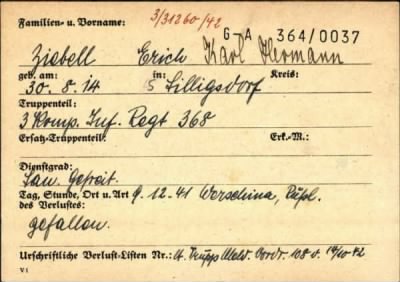 Familien- u. Vorname: 3/31260/42
G-A 364/0037
Ziebell Erich Karl Hermann
geb. am: in: Kreis:
30. 8. 14 Silligsdorf
Truppenteil:
3 Komp. Inf. Regt 368
Ersatz-Truppenteil: Erk.-M.:
Dienstgrad:
San. Gefreit.
Tag, Stunde, Ort u. Art 9. 12. 41 Werschina, Rußl.
des Verlustes:
gefallen.
Urschriftliche Verlust-Listen Nr.: lt. Trupp Meld. Vordr. 108 v. 14/10 42
V1